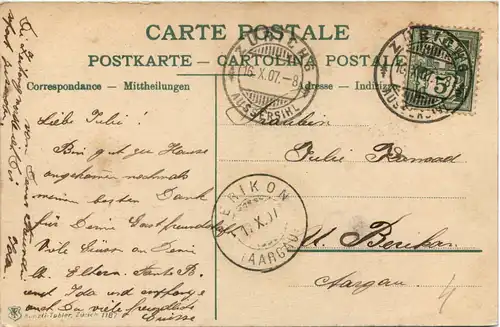 CARTE POSTALE
POSTKARTE — CARTOLINA POSTALE
Correspondance — Mittheilungen
Adresse — Indirizzo
ZÜRICH 6
16.X.07.-8
AUSSERSIHL
ZÜRICH 6
16.X.07
AUSSERSIHL
5
Liebe Julie!
Bin gut zu Hause
angekommen nochmals
meinen besten Dank
für Deine Gastfreundschaft
Viele Grüsse an Deine
lb. Eltern, Tante B.
und Ida und empfange
auch Du viele freundliche
Grüsse
von Deiner Freundin
Fräulein
Julie
BERIKON
X.07
(AARGAU)
U. Berikon
Aargau
4
Künzli-Tobler, Zürich 1187